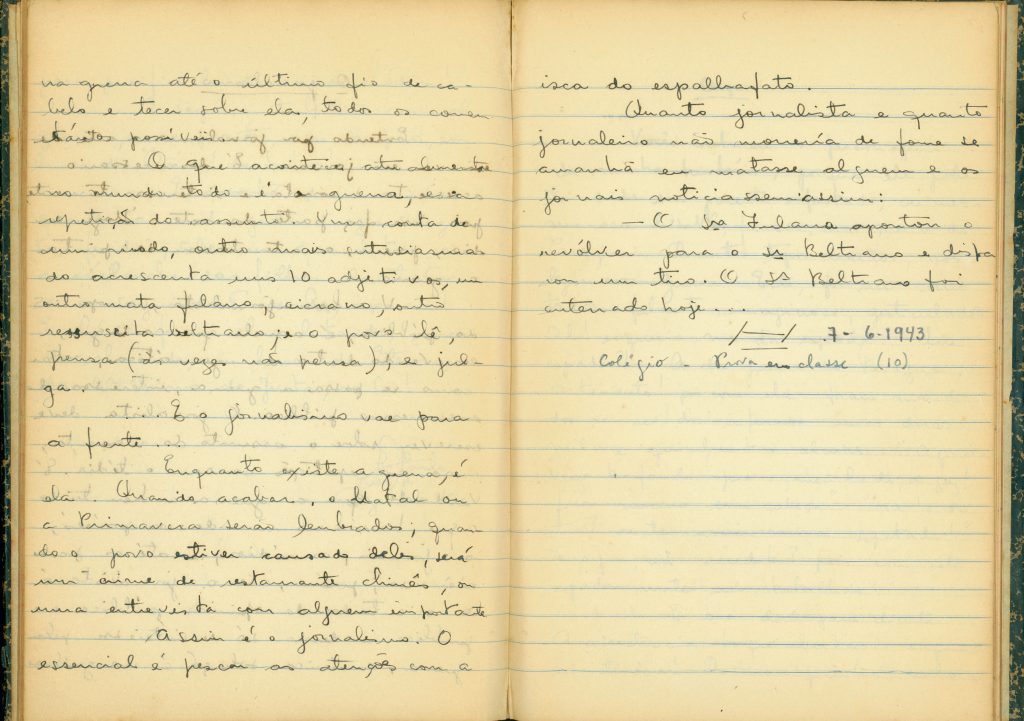 na guerra até o último fio de ca-
belo e tecer sobre ela, todos os comen
tários possíveis
O que acontece atualmente
no mundo todo é a guerra, e a
repetição do assunto. Um conta de
um modo, outro mais entusiasma
do acrescenta uns 10 adjetivos, um
outro mata fulano, cicrano, outro
ressuscita beltrano; e o povo lê,
pensa (às vezes não pensa), e jul-
ga.
... E o jornalismo vae para
a frente...
Enquanto existe a guerra, é
ela. Quando acabar, o Natal ou
a Primavera serão lembrados; quan-
do o povo estiver cansado deles, será
um crime de restaurante chinês, ou
uma entrevista com alguem importante
Assim é o jornalismo. O
essencial é pescar as atenções com a
isca do espalhafato.
Quanto jornalista e quanto
jornaleiro não morreria de fome se
amanhã eu matasse alguem e os
jornais noticiassem assim:
— O Sra Fulana apontou o
revólver para o Sr Beltrano e dispa
rou um tiro. O Sr Beltrano foi
enterrado hoje...
7-6-1943
Colégio - Prova em classe (10)